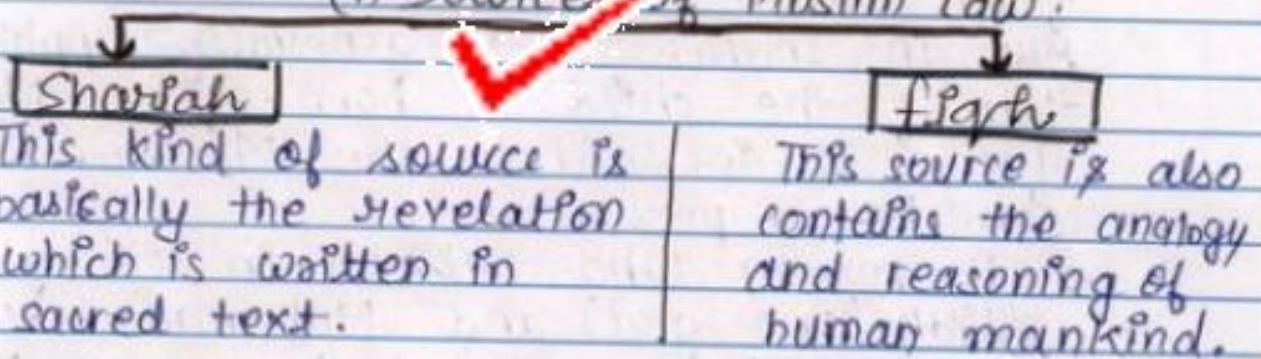 of Muslim Law.
Shariah
This kind of source is
basically the revelation
which is written in
sacred text.
fiqh
This source is also
contains the analogy
and reasoning of
human mankind.